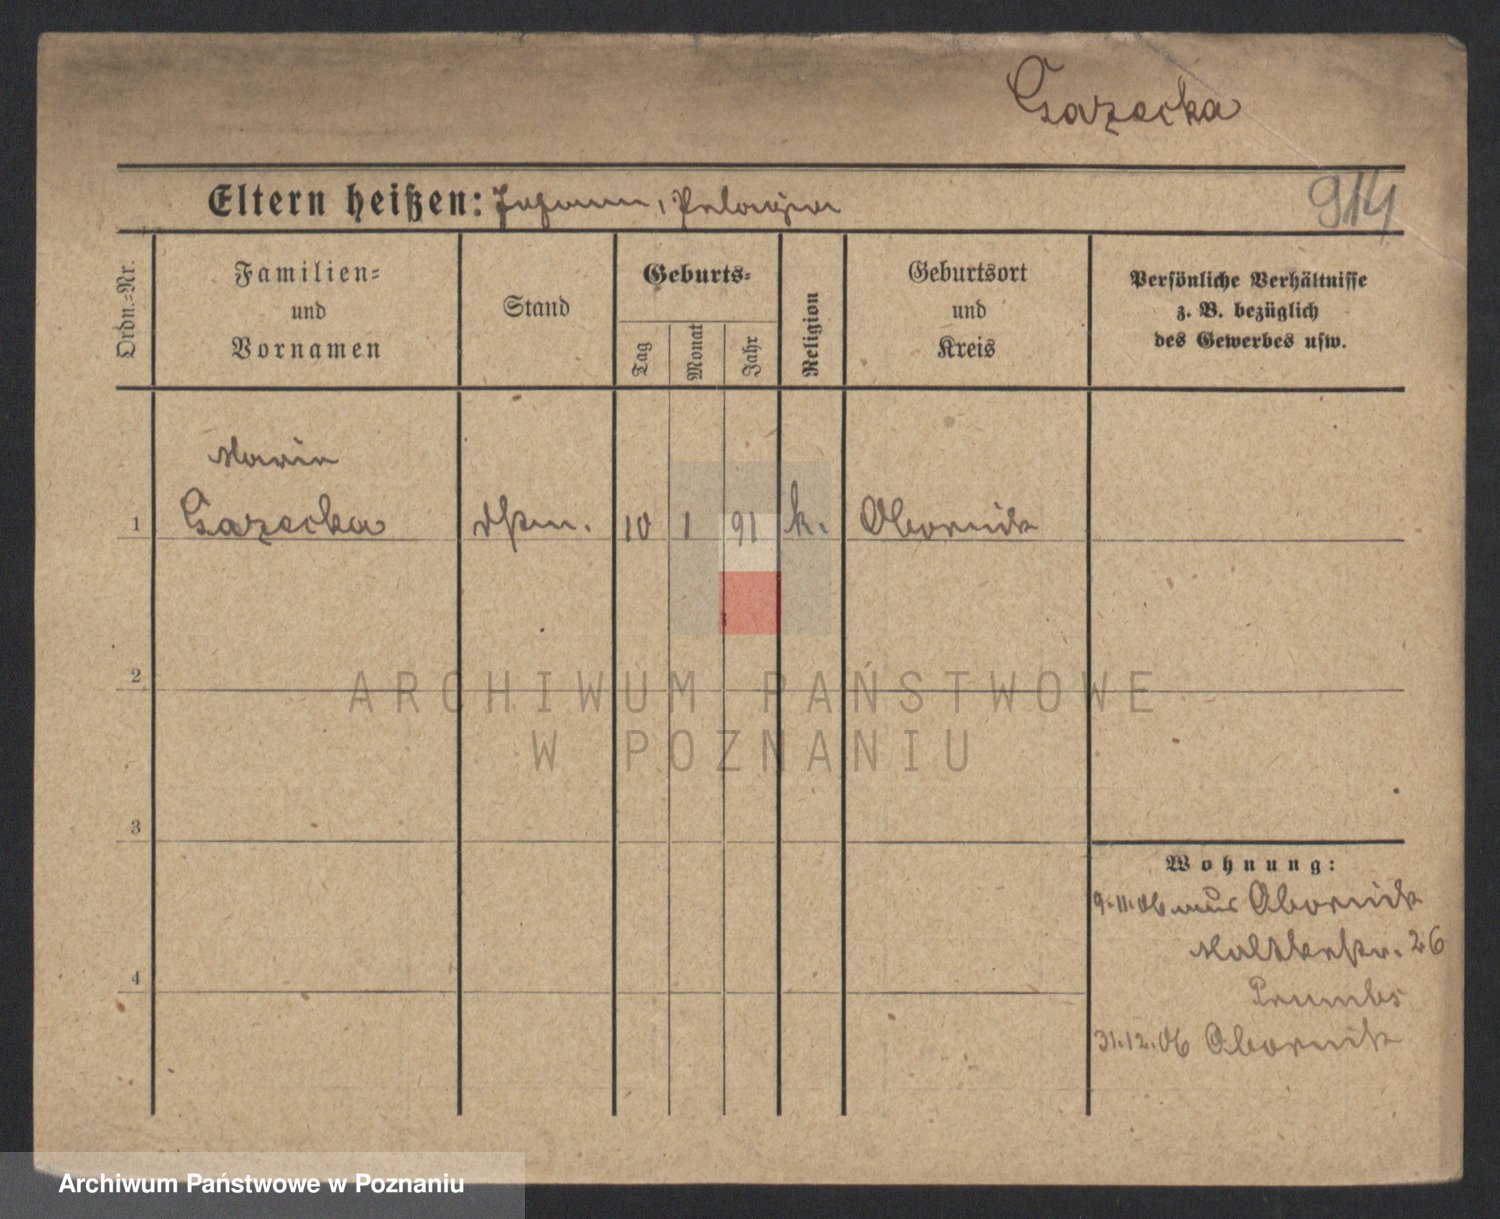 Gazecka
Eltern heißen: Johann, Pelagia
914
Ordn.-Nr.
Familien-
und
Vornamen
Stand
Geburts-
Tag
Monat
Jahr
Religion
Geburtsort
und
Kreis
Persönliche Verhältnisse
z. B. bezüglich
des Gewerbes usw.
Maria
1 Gazecka 10 1 91 k. Obornik
2
ARCHIWUM PAŃSTWOWE
W POZNANIU
3
Wohnung:
9.11.06 aus Obornik
Moltkestr. 26
4
31.12.06 Obornik
Archiwum Państwowe w Poznaniu